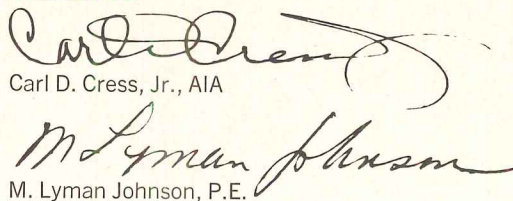 Carl D. Cress
Carl D. Cress, Jr., AIA
M Lyman Johnson
M. Lyman Johnson, P.E.